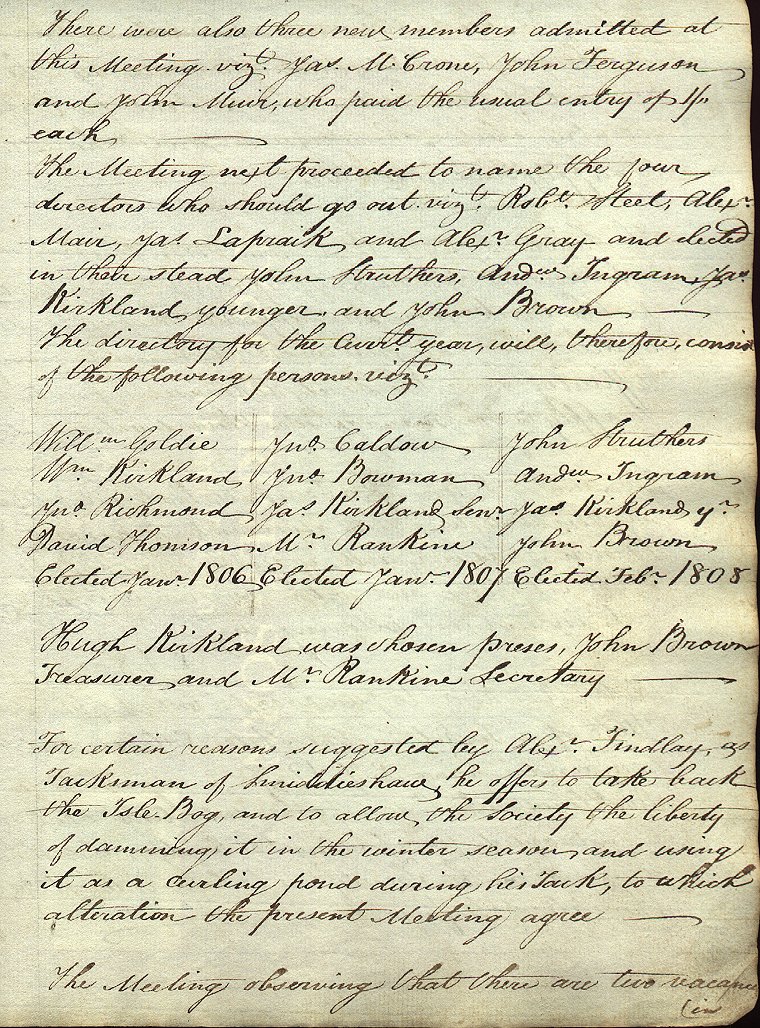 There were also three new members admitted at
this Meeting vizt. Jas. McCrone, John Ferguson
and John Muir, who paid the usual entry of 1/.
each
The Meeting next proceeded to name the four
directors who should go out vizt. Robt. Steel, Alexr.
Mair, Jas. Lapraik and Alexr. Gray and elected
in their stead John Struthers, Andw. Ingram, Jas.
Kirkland younger and John Brown
The directory for the Currt. year, will, therefore, consist
of the following persons vizt.
Willm. Goldie Jno. Caldow John Struthers
Wm. Kirkland Jno. Bowman Andw. Ingram
Jno. Richmond Jas. Kirkland Senr. Jas. Kirkland yr.
David Thomson Mr. Rankine John Brown
Elected Jany. 1806 Elected Jany. 1807 Elected Feby. 1808
Hugh Kirkland was chosen preses, John Brown
Treasurer and Mr. Rankine Secretary
For certain reasons suggested by Alexr. Findlay, as
Tacksman of he offers to take back
the Isle-Bog, and to allow the Society the liberty
of damming it in the winter season and using
it as a curling pond during his Tack, to which
alteration the present Meeting agree
The Meeting observing that there are two vacancies
(in